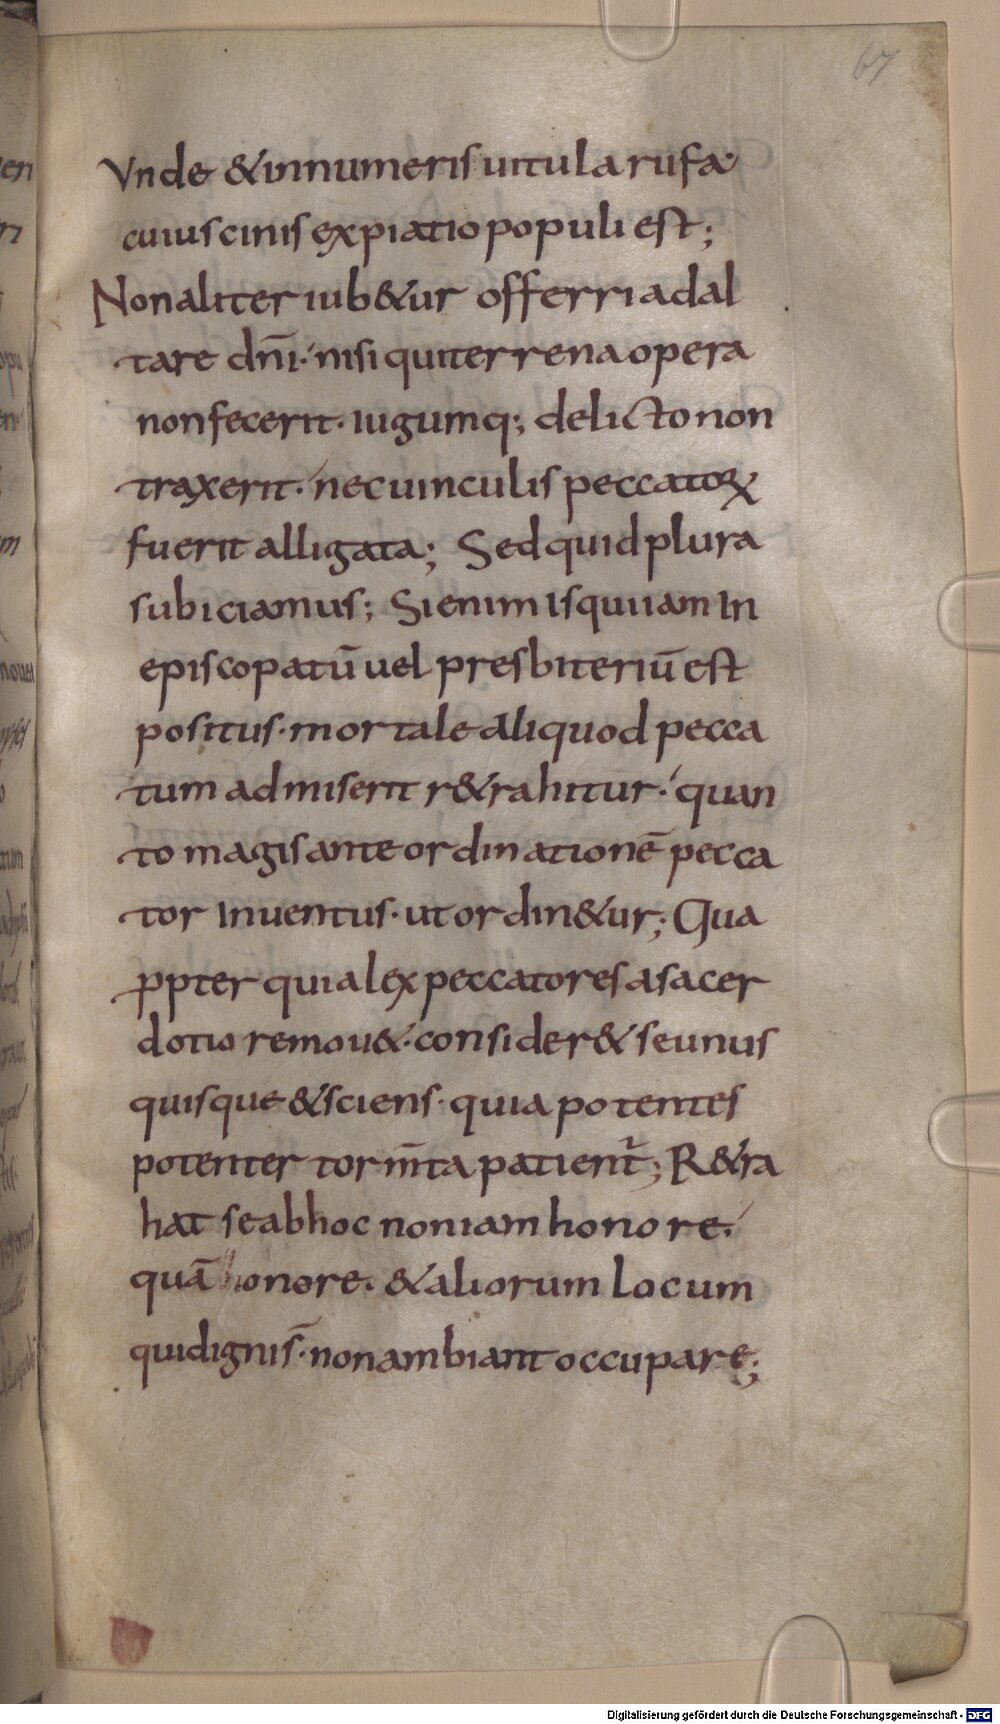 67
Vnde & innumeris uitula rufa
cuius cinis expiatio populi est;
Non aliter iub&ur offerri ad al
tare dn̄i· nisi qui terrena opera
non fecerit· iugumq; delicto non
traxerit· nec uinculis peccatoꝝ
fuerit alligata; Sed quid plura
subiciamus; Si enim is qui iam in
episcopatū uel presbiteriū est
positus· mortale aliquod pecca
tum admiserit r&rahitur· quan
to magis ante ordinationē pecca
tor inuentus· ut ordin&ur; Qua
ꝓpter quia lex peccatores a sacer
dotio remou&· consider& se unus
quisque & sciens· quia potentes
potenter torm̄ta patient̄; R&ra
hat se ab hoc non iam honore·
quā honore· & aliorum locum
qui digni s̄· non ambiant occupare;
Digitalisierung gefördert durch die Deutsche Forschungsgemeinschaft - DFG